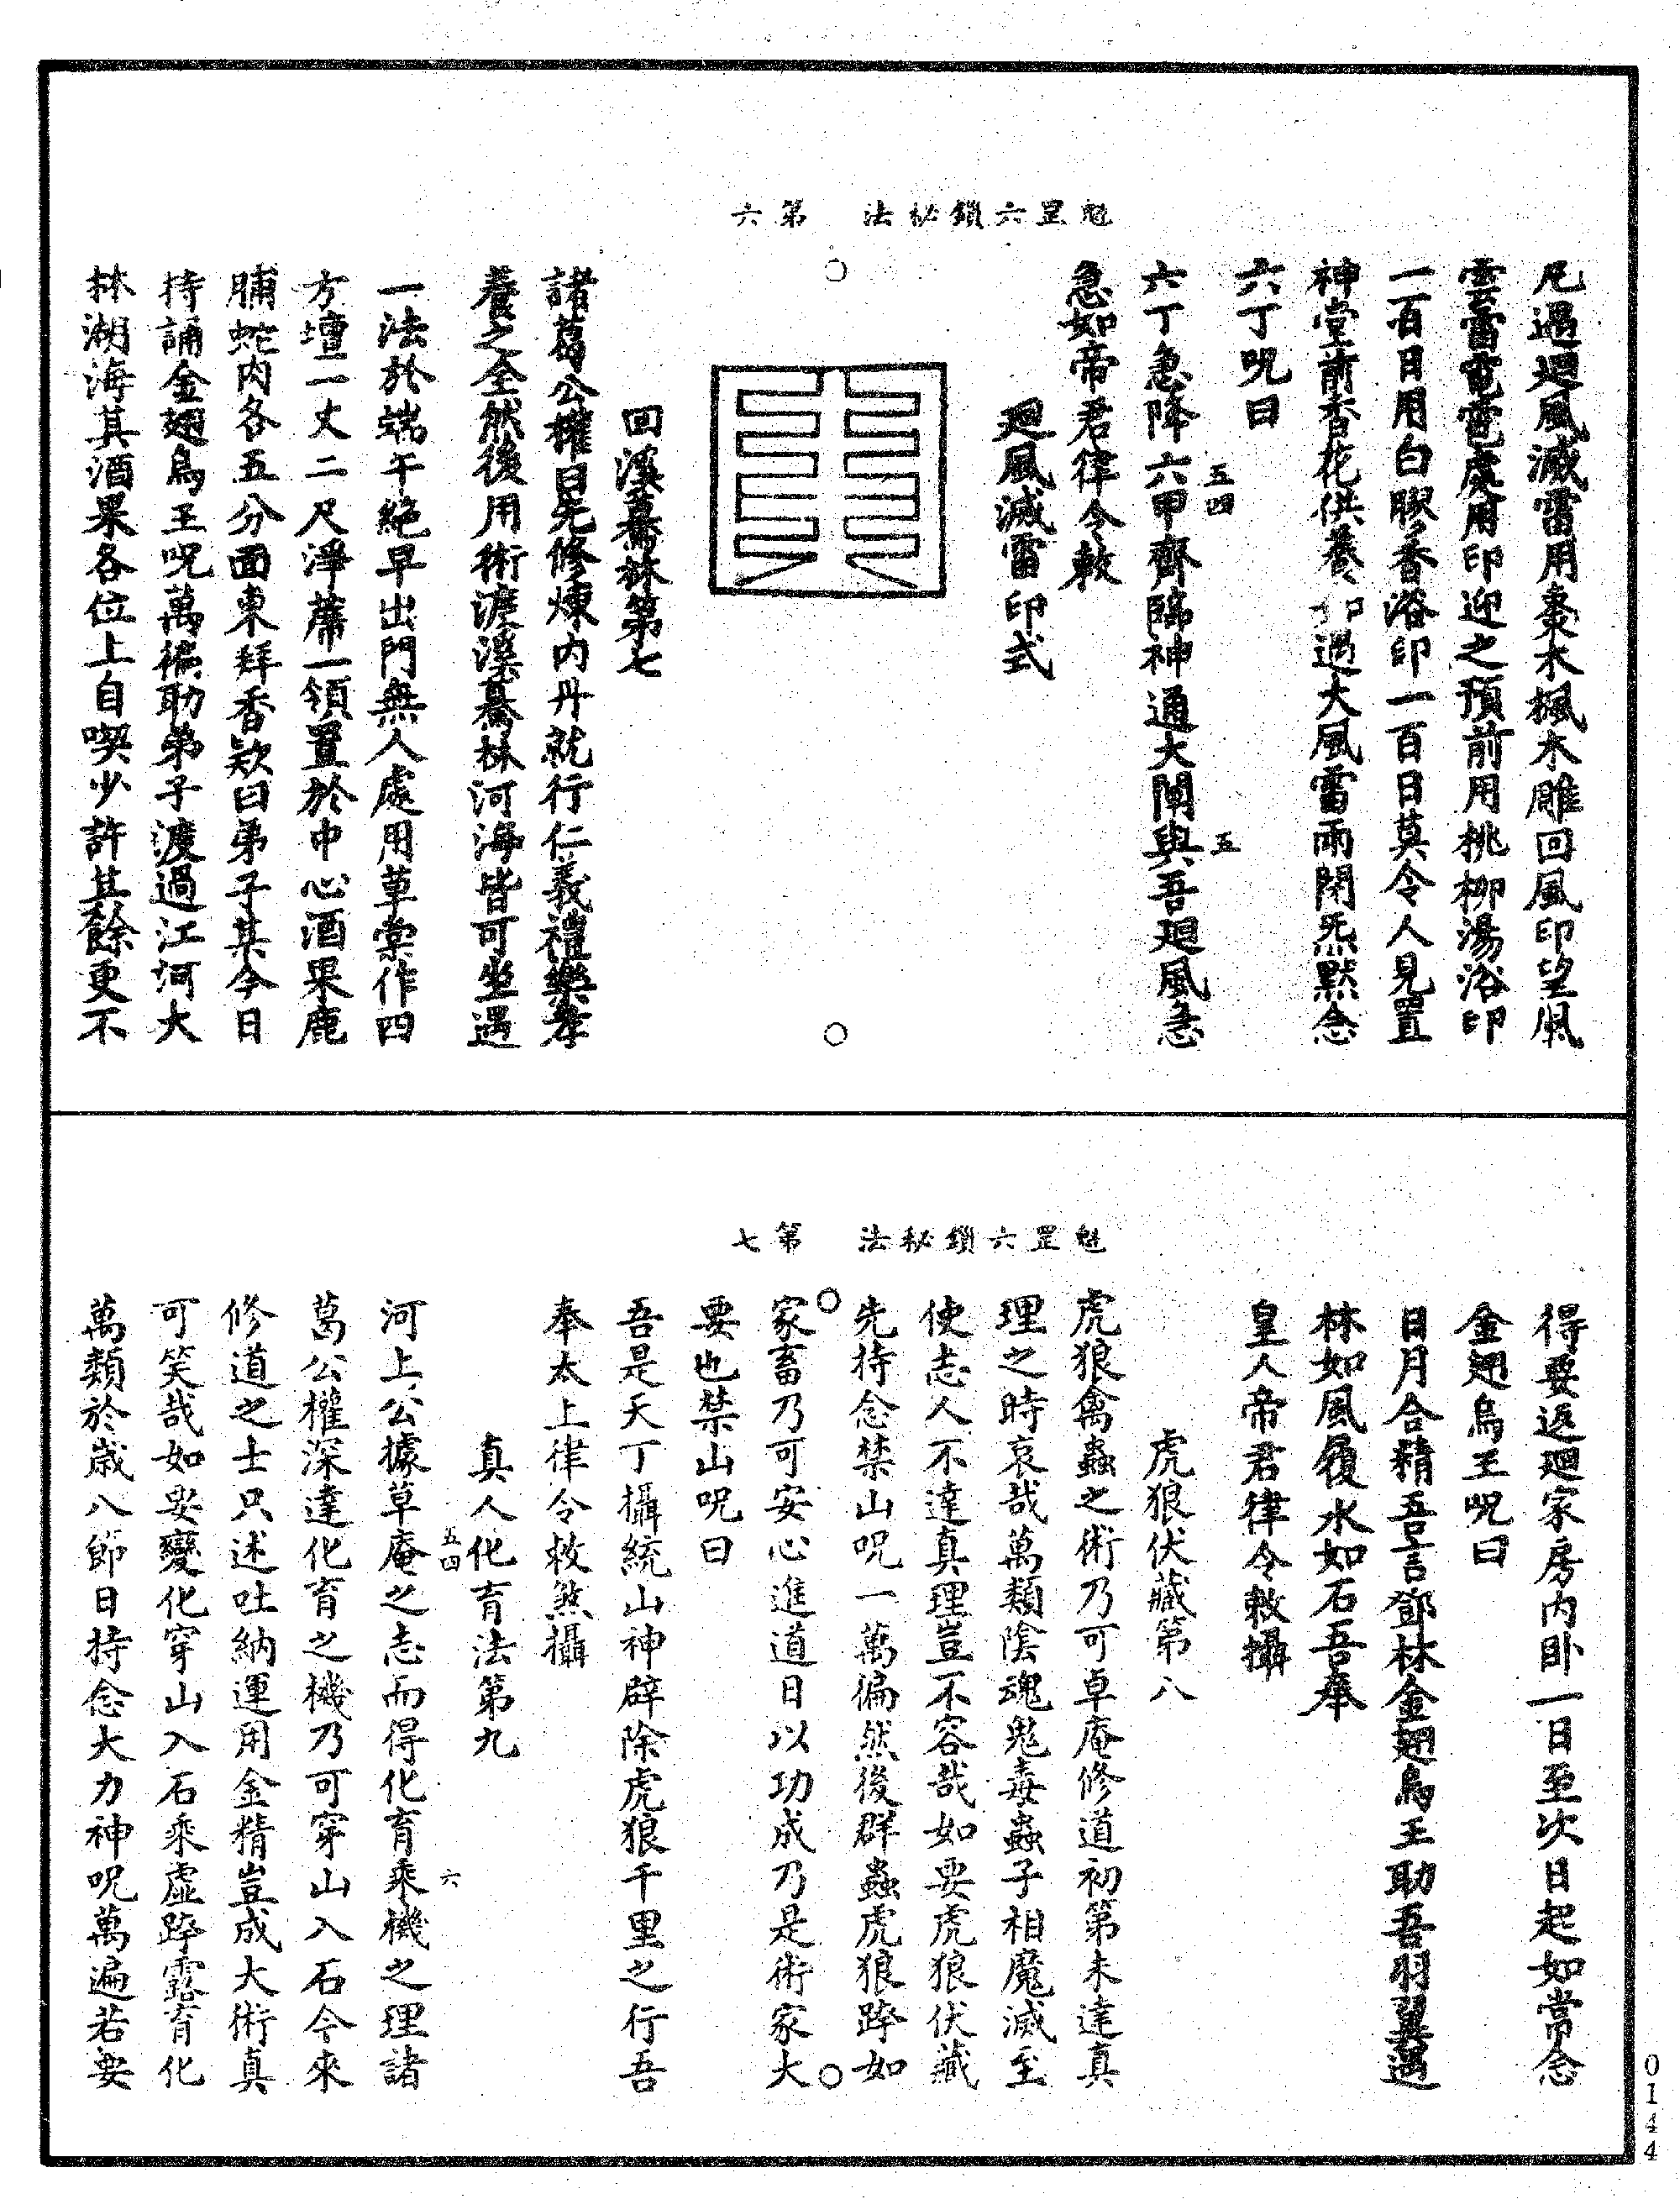 魁罡六鎖秘法　第六
凡過廻風滅雷用棗木楓木雕回風印望風
雲雷電雹處用印迎之預前用桃柳湯浴印
一百日用白膠香浴印一百日莫令人見置
神堂前香花供養印過大風雷雨閉炁默念
六丁呪曰
六丁急降六甲齊臨神通大闡與吾廻風急
五四　五
急如帝君律令敕
廻風滅雷印式
回溪驀林第七
諸葛公權曰先修煉內丹就行仁義禮樂孝
養之全然後用術渡溪驀林河海皆可坐過
一法於端午絕早出門無人處用草棠作四
方壇一丈二尺淨蓆一領置於中心酒果鹿
脯蛇肉各五分面東拜香欵曰弟子某今日
持誦金翅鳥王呪萬徧助弟子渡過江河大
林湖海其酒果各位上自喫少許其餘更不
魁罡六鎖秘法　第七
得要返廻家房內卧一日至次日起如常念
金翅鳥王呪曰
日月合精吾言鄧林金翅鳥王助吾羽翼過
林如風履水如石吾奉
皇人帝君律令敕攝
虎狼伏藏第八
虎狼禽蟲之術乃可卓庵修道初第未達真
理之時哀哉萬類陰魂鬼毒蟲子相魔滅至
使志人不達真理豈不容哉如要虎狼伏藏
先持念禁山呪一萬徧然後群蟲虎狼踤如
家畜乃可安心進道日以功成乃是術家大
要也禁山呪曰
吾是天丁攝統山神辟除虎狼千里之行吾
奉太上律令敕煞攝
真人化育法第九
五四　六
河上公據草庵之志而得化育乘機之理諸
葛公權深達化育之機乃可穿山入石今來
修道之士只述吐納運用金精豈成大術真
可笑哉如要變化穿山入石乘虛踤露育化
萬類於歲八節日持念大力神呪萬遍若要
0144